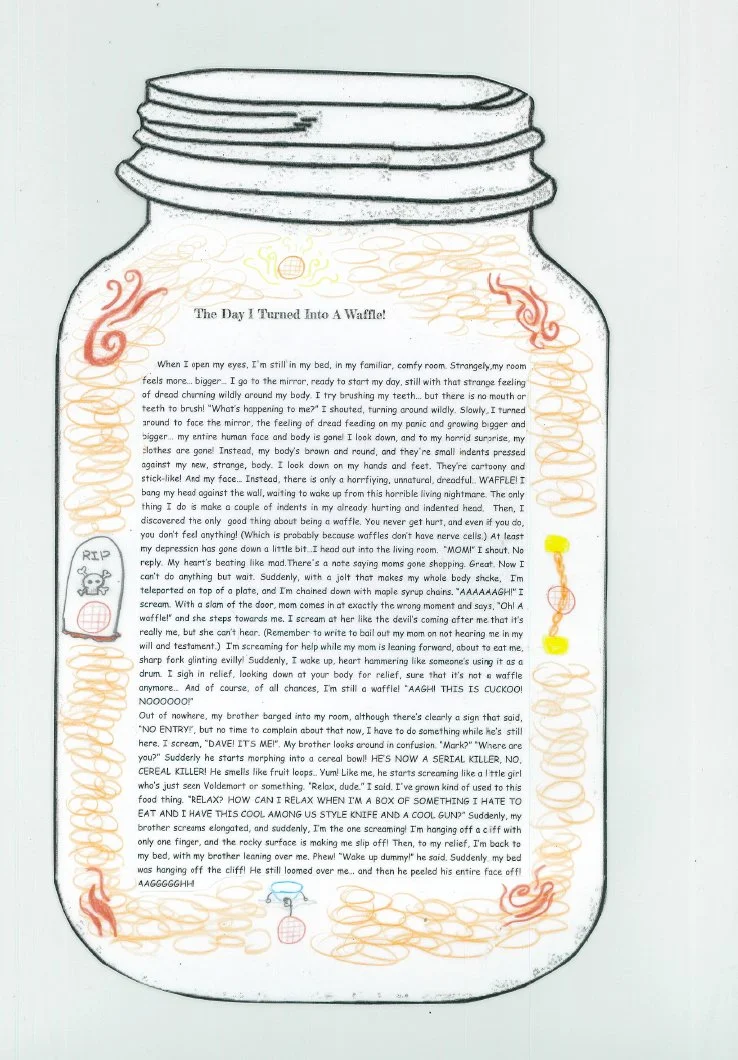 The Day I Turned Into A Waffle!
When I open my eyes, I'm still in my bed, in my familiar, comfy room. Strangely,my room
feels more... bigger... I go to the mirror, ready to start my day, still with that strange feeling
of dread churning wildly around my body. I try brushing my teeth... but there is no mouth or
teeth to brush! "What's happening to me?" I shouted, turning around wildly. Slowly, I turned
around to face the mirror, the feeling of dread feeding on my panic and growing bigger and
bigger... my entire human face and body is gone! I look down, and to my horrid surprise, my
clothes are gone! Instead, my body's brown and round, and they're small indents pressed
against my new, strange, body. I look down on my hands and feet. They're cartoony and
stick-like! And my face... Instead, there is only a horrfiying, unnatural, dreadful.. WAFFLE! I
bang my head against the wall, waiting to wake up from this horrible living nightmare. The only
thing I do is make a couple of indents in my already hurting and indented head. Then, I
discovered the only good thing about being a waffle. You never get hurt, and even if you do,
you don't feel anything! (Which is probably because waffles don't have nerve cells.) At least
my depression has gone down a little bit...I head out into the living room. "MOM!" I shout. No
reply. My heart's beating like mad.There's a note saying moms gone shopping. Great. Now I
can't do anything but wait. Suddenly, with a jolt that makes my whole body shake, I'm
teleported on top of a plate, and I'm chained down with maple syrup chains. "AAAAAAGH!" I
scream. With a slam of the door, mom comes in at exactly the wrong moment and says, "Oh! A
waffle!" and she steps towards me. I scream at her like the devil's coming after me that it's
really me, but she can't hear. (Remember to write to bail out my mom on not hearing me in my
will and testament.) I'm screaming for help while my mom is leaning forward, about to eat me,
sharp fork glinting evilly! Suddenly, I wake up, heart hammering like someone's using it as a
drum. I sigh in relief, looking down at your body for relief, sure that it's not a waffle
anymore... And of course, of all chances, I'm still a waffle! "AAGH! THIS IS CUCKOO!
NOOOOOO!"
Out of nowhere, my brother barged into my room, although there's clearly a sign that said,
"NO ENTRY!", but no time to complain about that now, I have to do something while he's still
here. I scream, "DAVE! IT'S ME!". My brother looks around in confusion. "Mark?" "Where are
you?" Suddenly he starts morphing into a cereal bowl! HE'S NOW A SERIAL KILLER, NO,
CEREAL KILLER! He smells like fruit loops.. Yum! Like me, he starts screaming like a little girl
who's just seen Voldemort or something. "Relax, dude." I said. I've grown kind of used to this
food thing. "RELAX? HOW CAN I RELAX WHEN I'M A BOX OF SOMETHING I HATE TO
EAT AND I HAVE THIS COOL AMONG US STYLE KNIFE AND A COOL GUN?" Suddenly, my
brother screams elongated, and suddenly, I'm the one screaming! I'm hanging off a cliff with
only one finger, and the rocky surface is making me slip off! Then, to my relief, I'm back to
my bed, with my brother leaning over me. Phew! "Wake up dummy!" he said. Suddenly, my bed
was hanging off the cliff! He still loomed over me... and then he peeled his entire face off!
AAGGGGGHH!
RIP